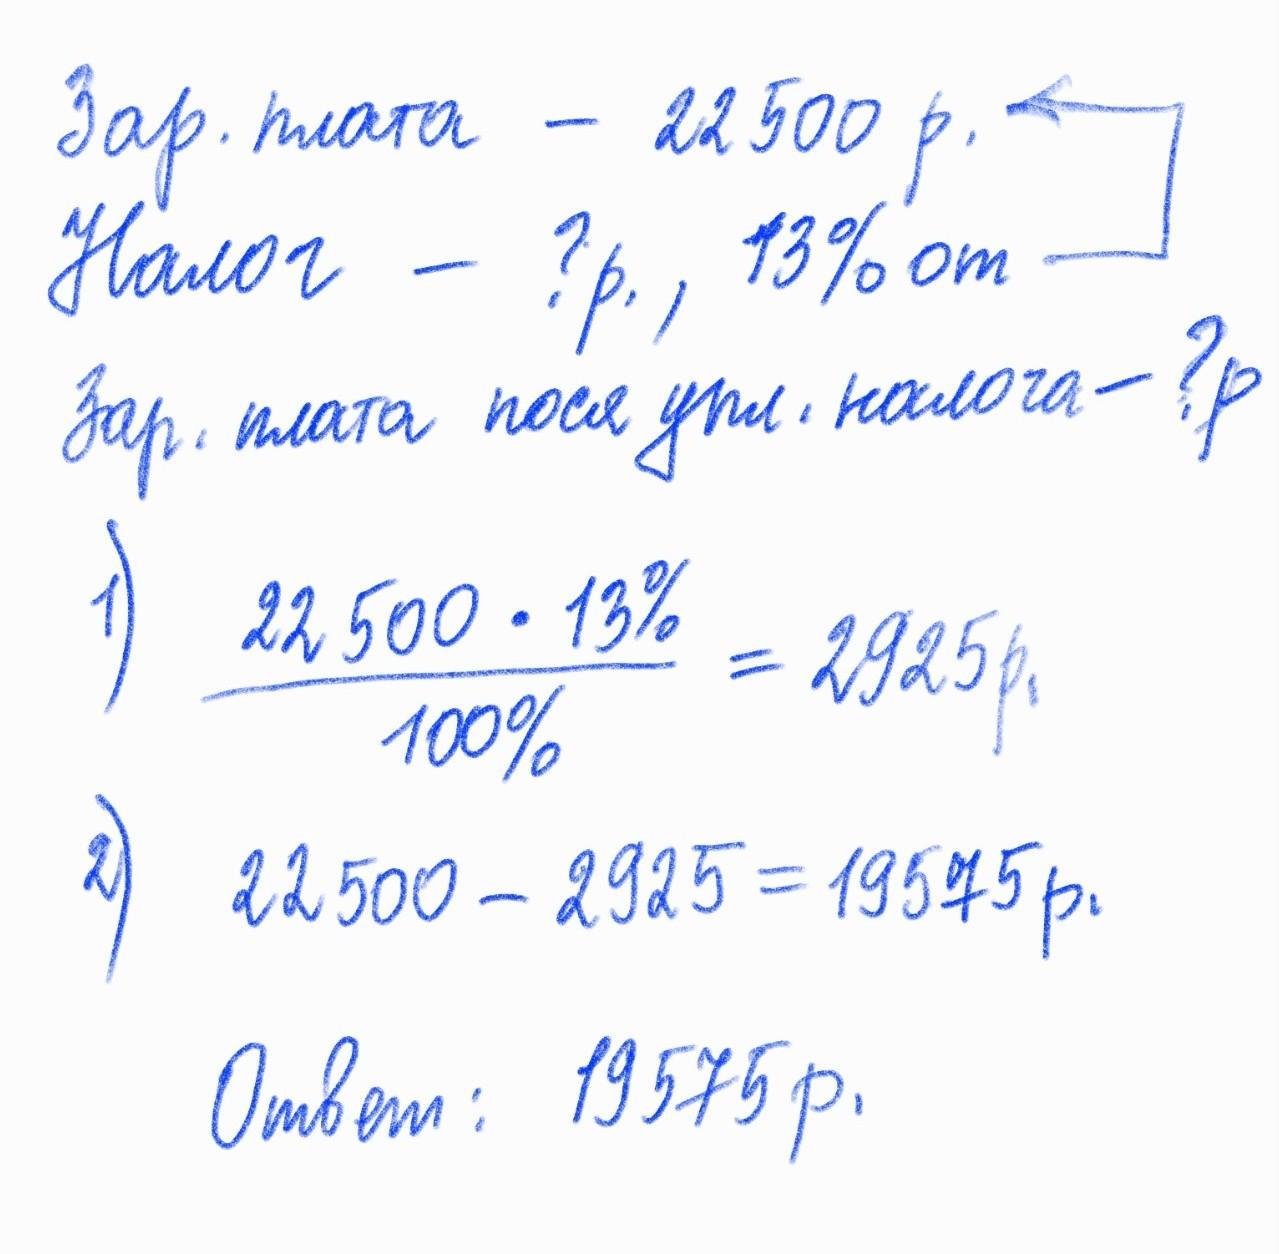 Зар. плата – 22 500 р.
Налог – ? р., 13% от
Зар. плата пося упл. налога – ? р
1) 22 500 · 13%
100%
= 2925 р.
2) 22 500 – 2925 = 19575 р.
Ответ: 19575 р.